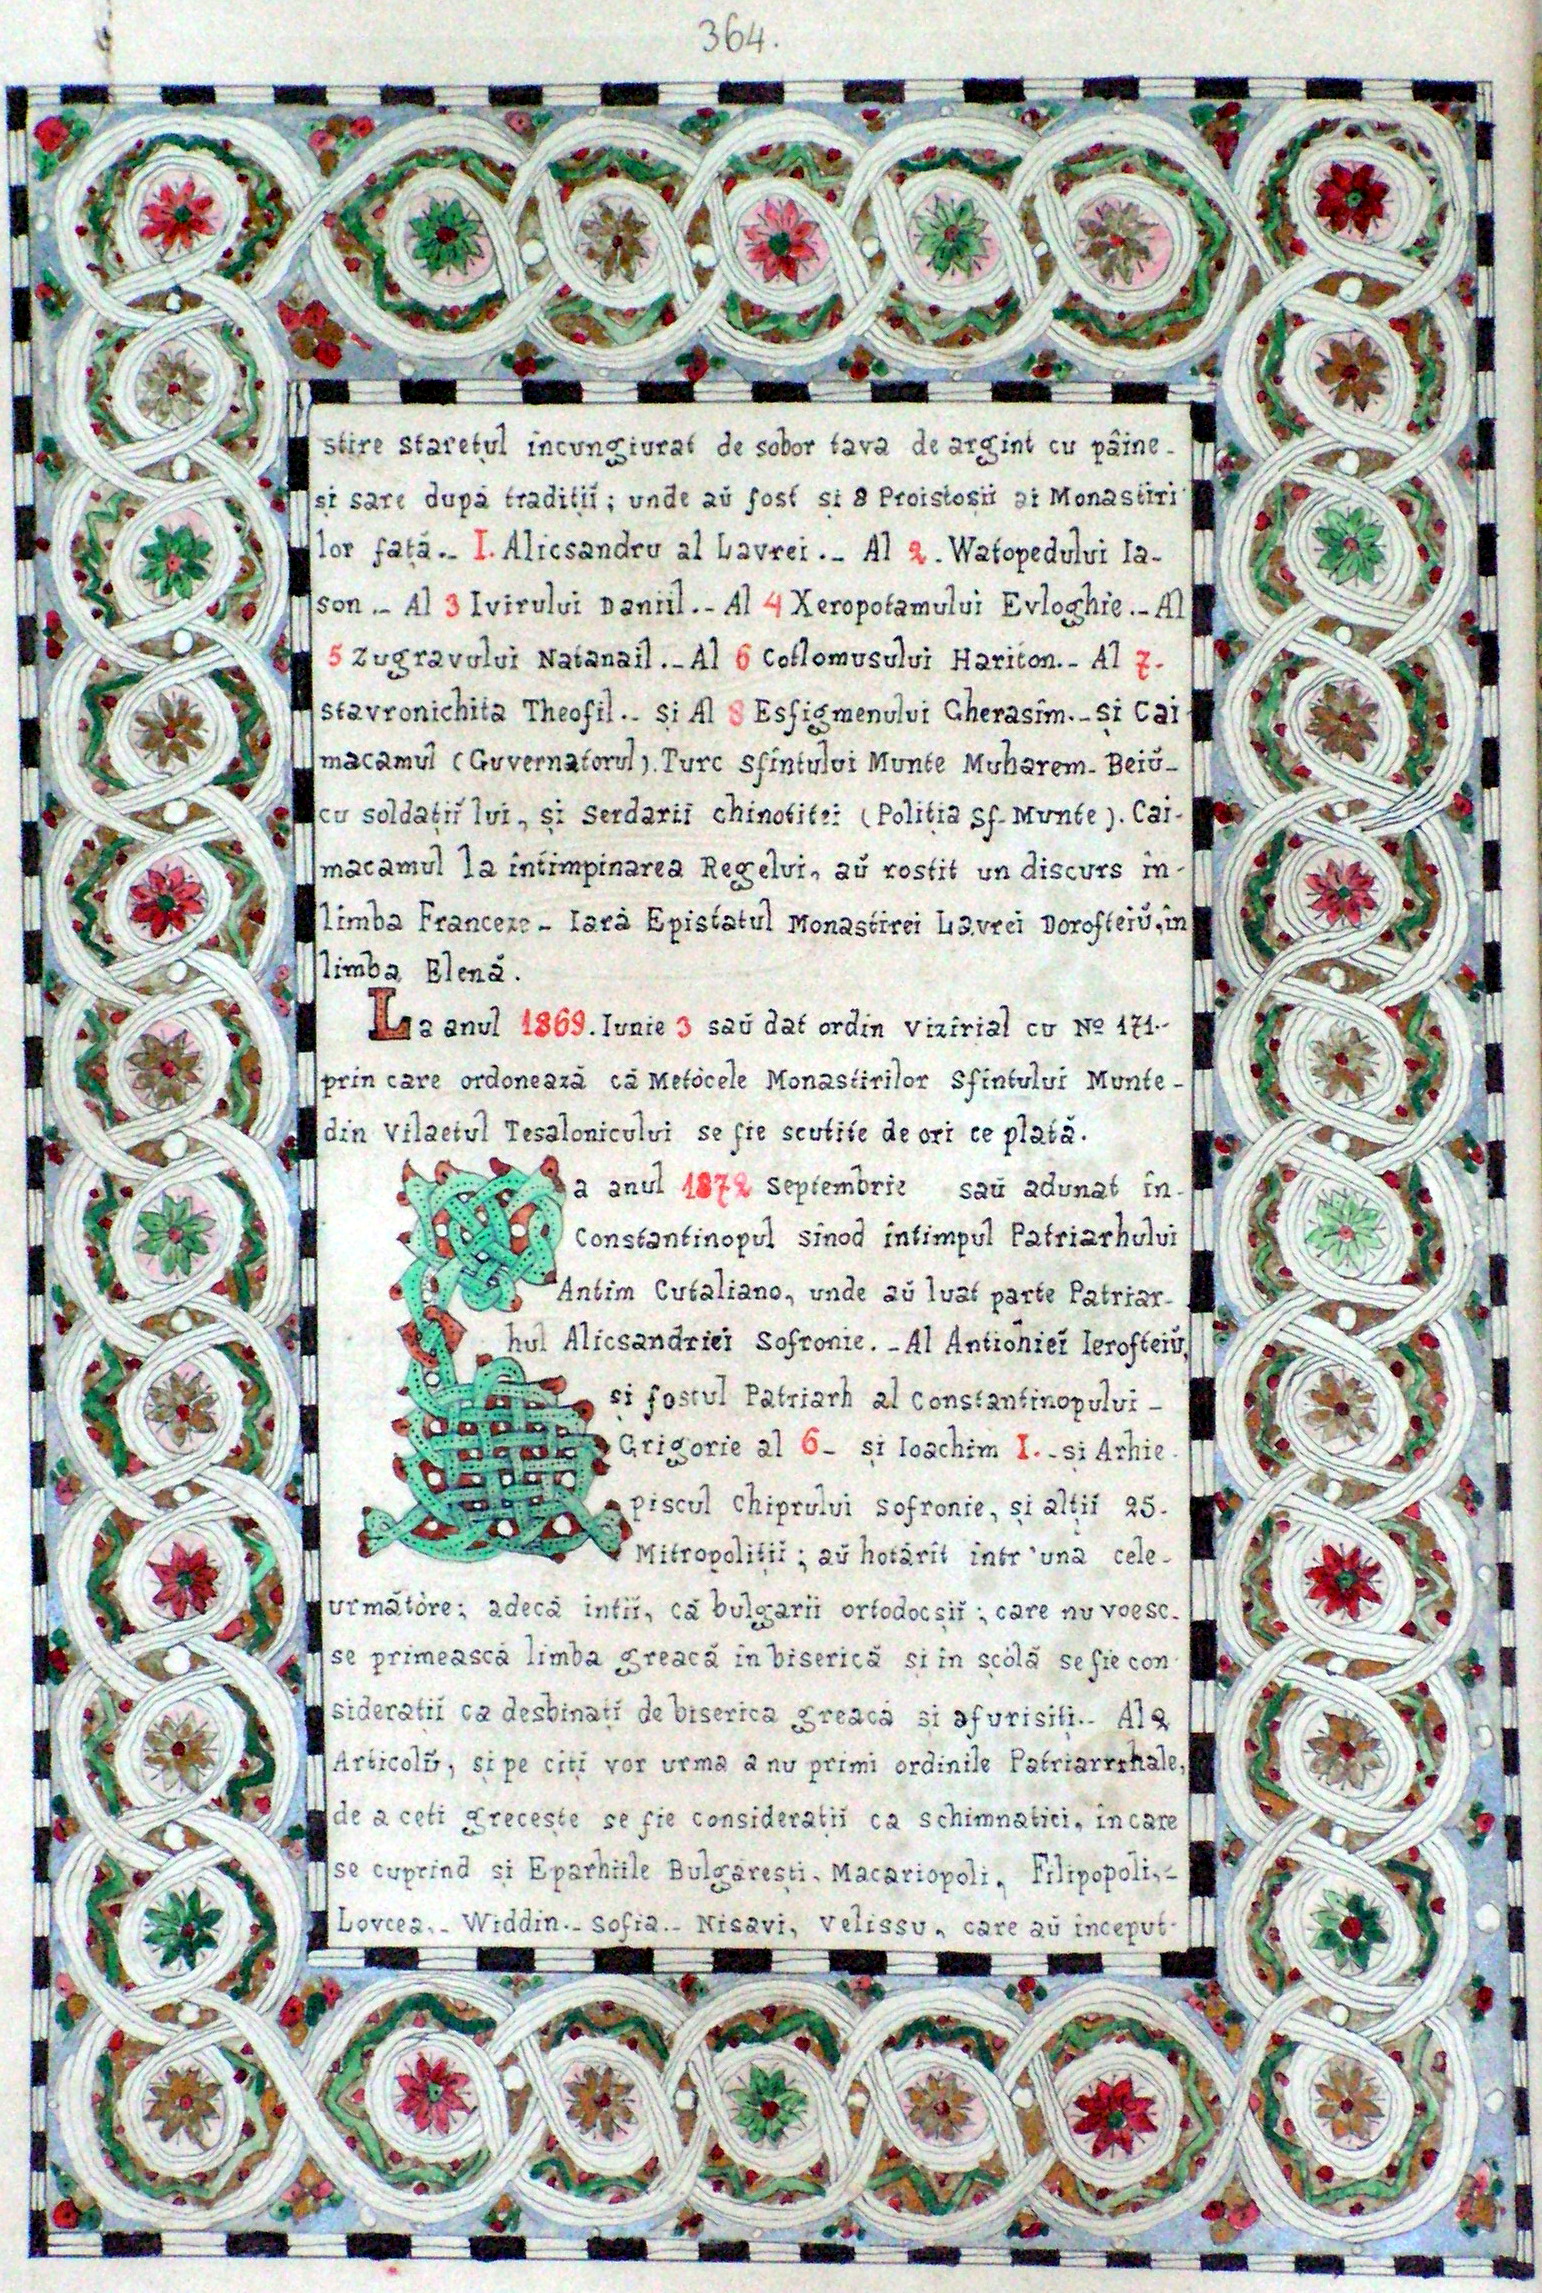 364.
stire staretul încungiurat de sobor tava de argint cu pâine-
și sare după tradiții; unde aŭ fost și 8 Proistosii ai Monastiri
lor față.- I. Alicsandru al Lavrei.- Al 2. Watopedului Ia-
son.- Al 3 Ivirului Daniil.- Al 4 Xeropotamului Evloghie.- Al
5 Zugravului Natanail.- Al 6 Cotlomusului Hariton.- Al 7-
stavronichita Theofil.- și Al 8 Esfigmenului Gherasim.- și Cai-
macamul (Guvernatorul). Turc sfîntului Munte Muharem-Beiŭ-
cu soldațiĭ lui, și serdarii chinotitei (Poliția Sf-Munte). Cai-
macamul la întimpinarea Regelui, aŭ rostit un discurs în-
limba Franceze- Iară Epistatul Monastirei Lavrei Dorofteiŭ, în
limba Elenă.
La anul 1869. Iunie 3 saŭ dat ordin vizirial cu No 171.-
prin care ordonează că Metócele Monastirilor Sfîntului Munte-
din Vilaetul Tesalonicului se fie scutite de ori ce plată.
La anul 1872 Septembrie saŭ adunat în-
Constantinopul sinod întimpul Patriarhului
Antim Cutaliano, unde aŭ luat parte Patriar-
hul Alicsandriei Sofronie.- Al Antiohieĭ Ierofteiŭ,
și fostul Patriarh al Constantinopului-
Grigorie al 6- și Ioachim I.- și Arhie-
piscul Chiprului Sofronie, și alțiĭ 25-
Mitropolițiĭ; aŭ hotărît într'una cele-
următóre; adecă întiĭ, că bulgarii ortodocșiĭ; care nu voesc-
se primească limba greacă în biserică și în școlă se fie con-
siderațiĭ ca desbinațĭ de biserica greacă și afurisiți.- Al 2
Articolŭ, și pe cîți vor urma a nu primi ordinile Patriarrhale,
de a ceti grecește se fie considerațiĭ ca schimnatici, în care
se cuprind și Eparhiile Bulgărești, Macariopoli, Filipopoli,-
Lovcea.- Widdin.- Sofia.- Nisavi, Velissu, care aŭ început-